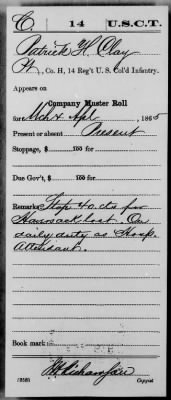 C. 14 U.S.C.T.
Patrick H. Clay
Pt, Co. H, 14 Reg't U. S. Col'd Infantry.
Appears on
Company Muster Roll
for Mch & Apl, 1865
Present or absent Present
Stoppage, $ 100 for
Due Gov't, $ 100 for
Remarks: Stop 40 cts for
Haversack lost. On
daily duty as Hosp.
Attendant.
Book mark:
(858)
Copyist.